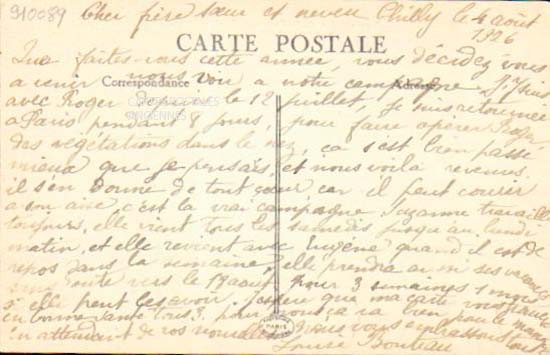 910089
Cher frère sœur et neveu Chilly le 4 août
1926
CARTE POSTALE
Que faites-vous cette année, vous décidez vous
Correspondance
Adresse
a venir nous voir a notre campagne J'y suis
avec Roger depuis le 12 juillet, Je suis retournée
a Paris pendant 8 jours pour faire opérer Roger
des végétations dans le nez, ca s'est bien passé
mieux que je pensais, et nous voilà revenus.
il s'en donne de tout cœur car il peut courir
a son aise c'est la vrai campagne, Suzanne travaille
toujours, elle vient tous les samedis jusqu'au lundi
matin, et elle revient avec Eugène quand il est de
repos dans la semaine, elle prendra ses vacances
vers le 19 aout, pour 3 semaines 1 mois
si elle peut que ma carte vous trouve
en bonne santé tous 3, pour nous ça va bien pour le moment
en attendant de vos nouvelles nous vous embrassons tous
Louise
PARIS